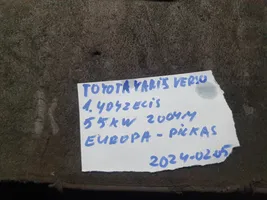 TOYOTA YARIS VERSO
1.4 D4D ZELIS
55KW 2004M
EUROPA - PILKAS
2024-02-05